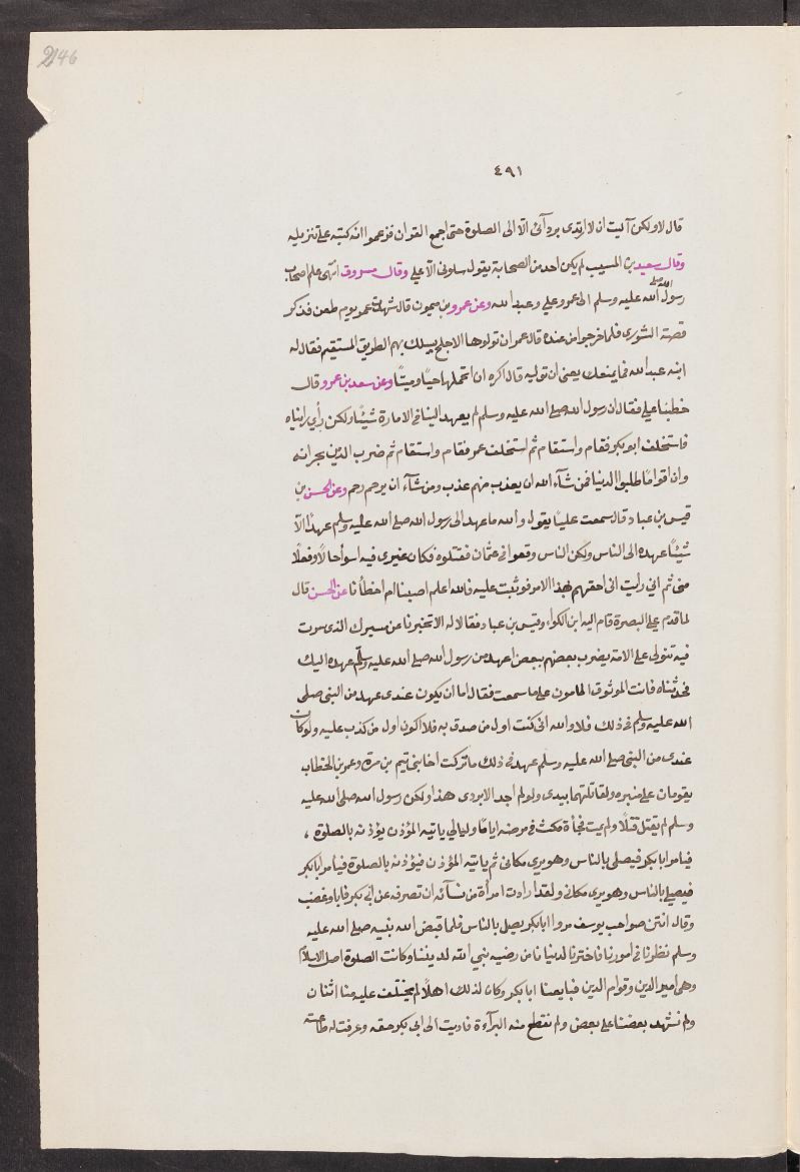 246
٤٩١
قال لا ولكن آليت ان لا ارتدى بردآئى الّا الى الصلوة حتى اجمع القران فزعموا انه كتبه على تنزيله
وقال سعيد بن المسيب لم يكن احد من الصحابة يقول سلونى الّا على وقال مسروق انتهى علم اصحاب
رسول الله صلى الله عليه وسلم الى عمرو على وعبد الله وعن عمرو بن ميمون قال شهدت عمر يوم طعن فذكر
قصته الشورى فلما خرجوا من عنده قال عمر ان تولوها الاجلح يسلك بهم الطريق المستقيم فقال له
ابنه عبد الله فما يمنعك يعنى ان توليه قال اكره ان اتحملها حيًا وميتًا وعن سعد بن عمرو قال
خطبنا على فقال ان رسول الله صلى الله عليه وسلم لم يعهد الينا فى الامارة شيئًا ولكن رأى رايناه
فاستخلف ابو بكر فقام واستقام ثم استخلف عمر فقام واستقام ثم ضرب الدين بجرانه
وان اقوامًا طلبوا الدنيا فمن شآء الله ان يعذب منهم عذب ومن شآء ان يرحم رحم وعن الحسن بن
قيس بن عباد قال سمعت عليًا يقول والله ما عهد الى رسول الله صلى الله عليه وسلم عهدًا الّا
شيئًا عهده الى الناس ولكن الناس وقعوا فى عثمان فقتلوه فكان غيرى فيه اسوأ حالًا وفعلًا
منى ثم انى رأيت انى احقهم بهذا الامر فوثبت عليه فالله اعلم اصبنا ام اخطأنا عن الحسن قال
لما قدم على البصرة قام اليه ابن الكواء وقيس بن عباد فقالا له الا تخبرنا عن مسيرك الذى سرت
فيه تتولى على الامة يضرب بعضهم ببعض اعهد من رسول الله صلى الله عليه وسلم عهده اليك
فحدثناه فانت الموثوق المامون على ما سمعت فقال اما ان يكون عندى عهد من النبى صلى
الله عليه وسلم فى ذلك فلا والله انى كنت اول من صدق به فلا اكون اول من كذب عليه ولو كان
عندى من النبى صلى الله عليه وسلم عهد فى ذلك ما تركت اخا بنى تيم بن مرة وعمر بن الخطاب
يقومان على منبره ولقاتلتهما بيدى ولو لم اجد الا بردى هذا ولكن رسول الله صلى الله عليه
وسلم لم يقتل قتلًا ولم يمت فجأة مكث فى مرضه ايامًا وليالى ياتيه المؤذن يؤذنه بالصلوة ،
فيامر ابا بكر فيصلى بالناس وهو يرى مكانى ثم ياتيه المؤذن فيؤذنه بالصلوة فيامر ابا بكر
فيصلى بالناس وهو يرى مكانى ولقد ارادت امرأة من نسآئه ان تصرفه عن ابى بكر فابا وغضب
وقال انتن صواحب يوسف مروا ابا بكر يصلى بالناس فلما قبض الله نبيه صلى الله عليه
وسلم نظرنا فى امورنا فاخترنا لدنيانا من رضيه نبى الله لديننا وكانت الصلوة اصل الاسلام
وهى امير الدين وقوام الدين فبايعنا ابا بكر وكان لذلك اهلًا لم يختلف عليه منا اثنان
ولم نشهد بعضنا على بعض ولم نقطع منه البرآءة فاديت الى ابى بكر حقه وعرفت له طاعته